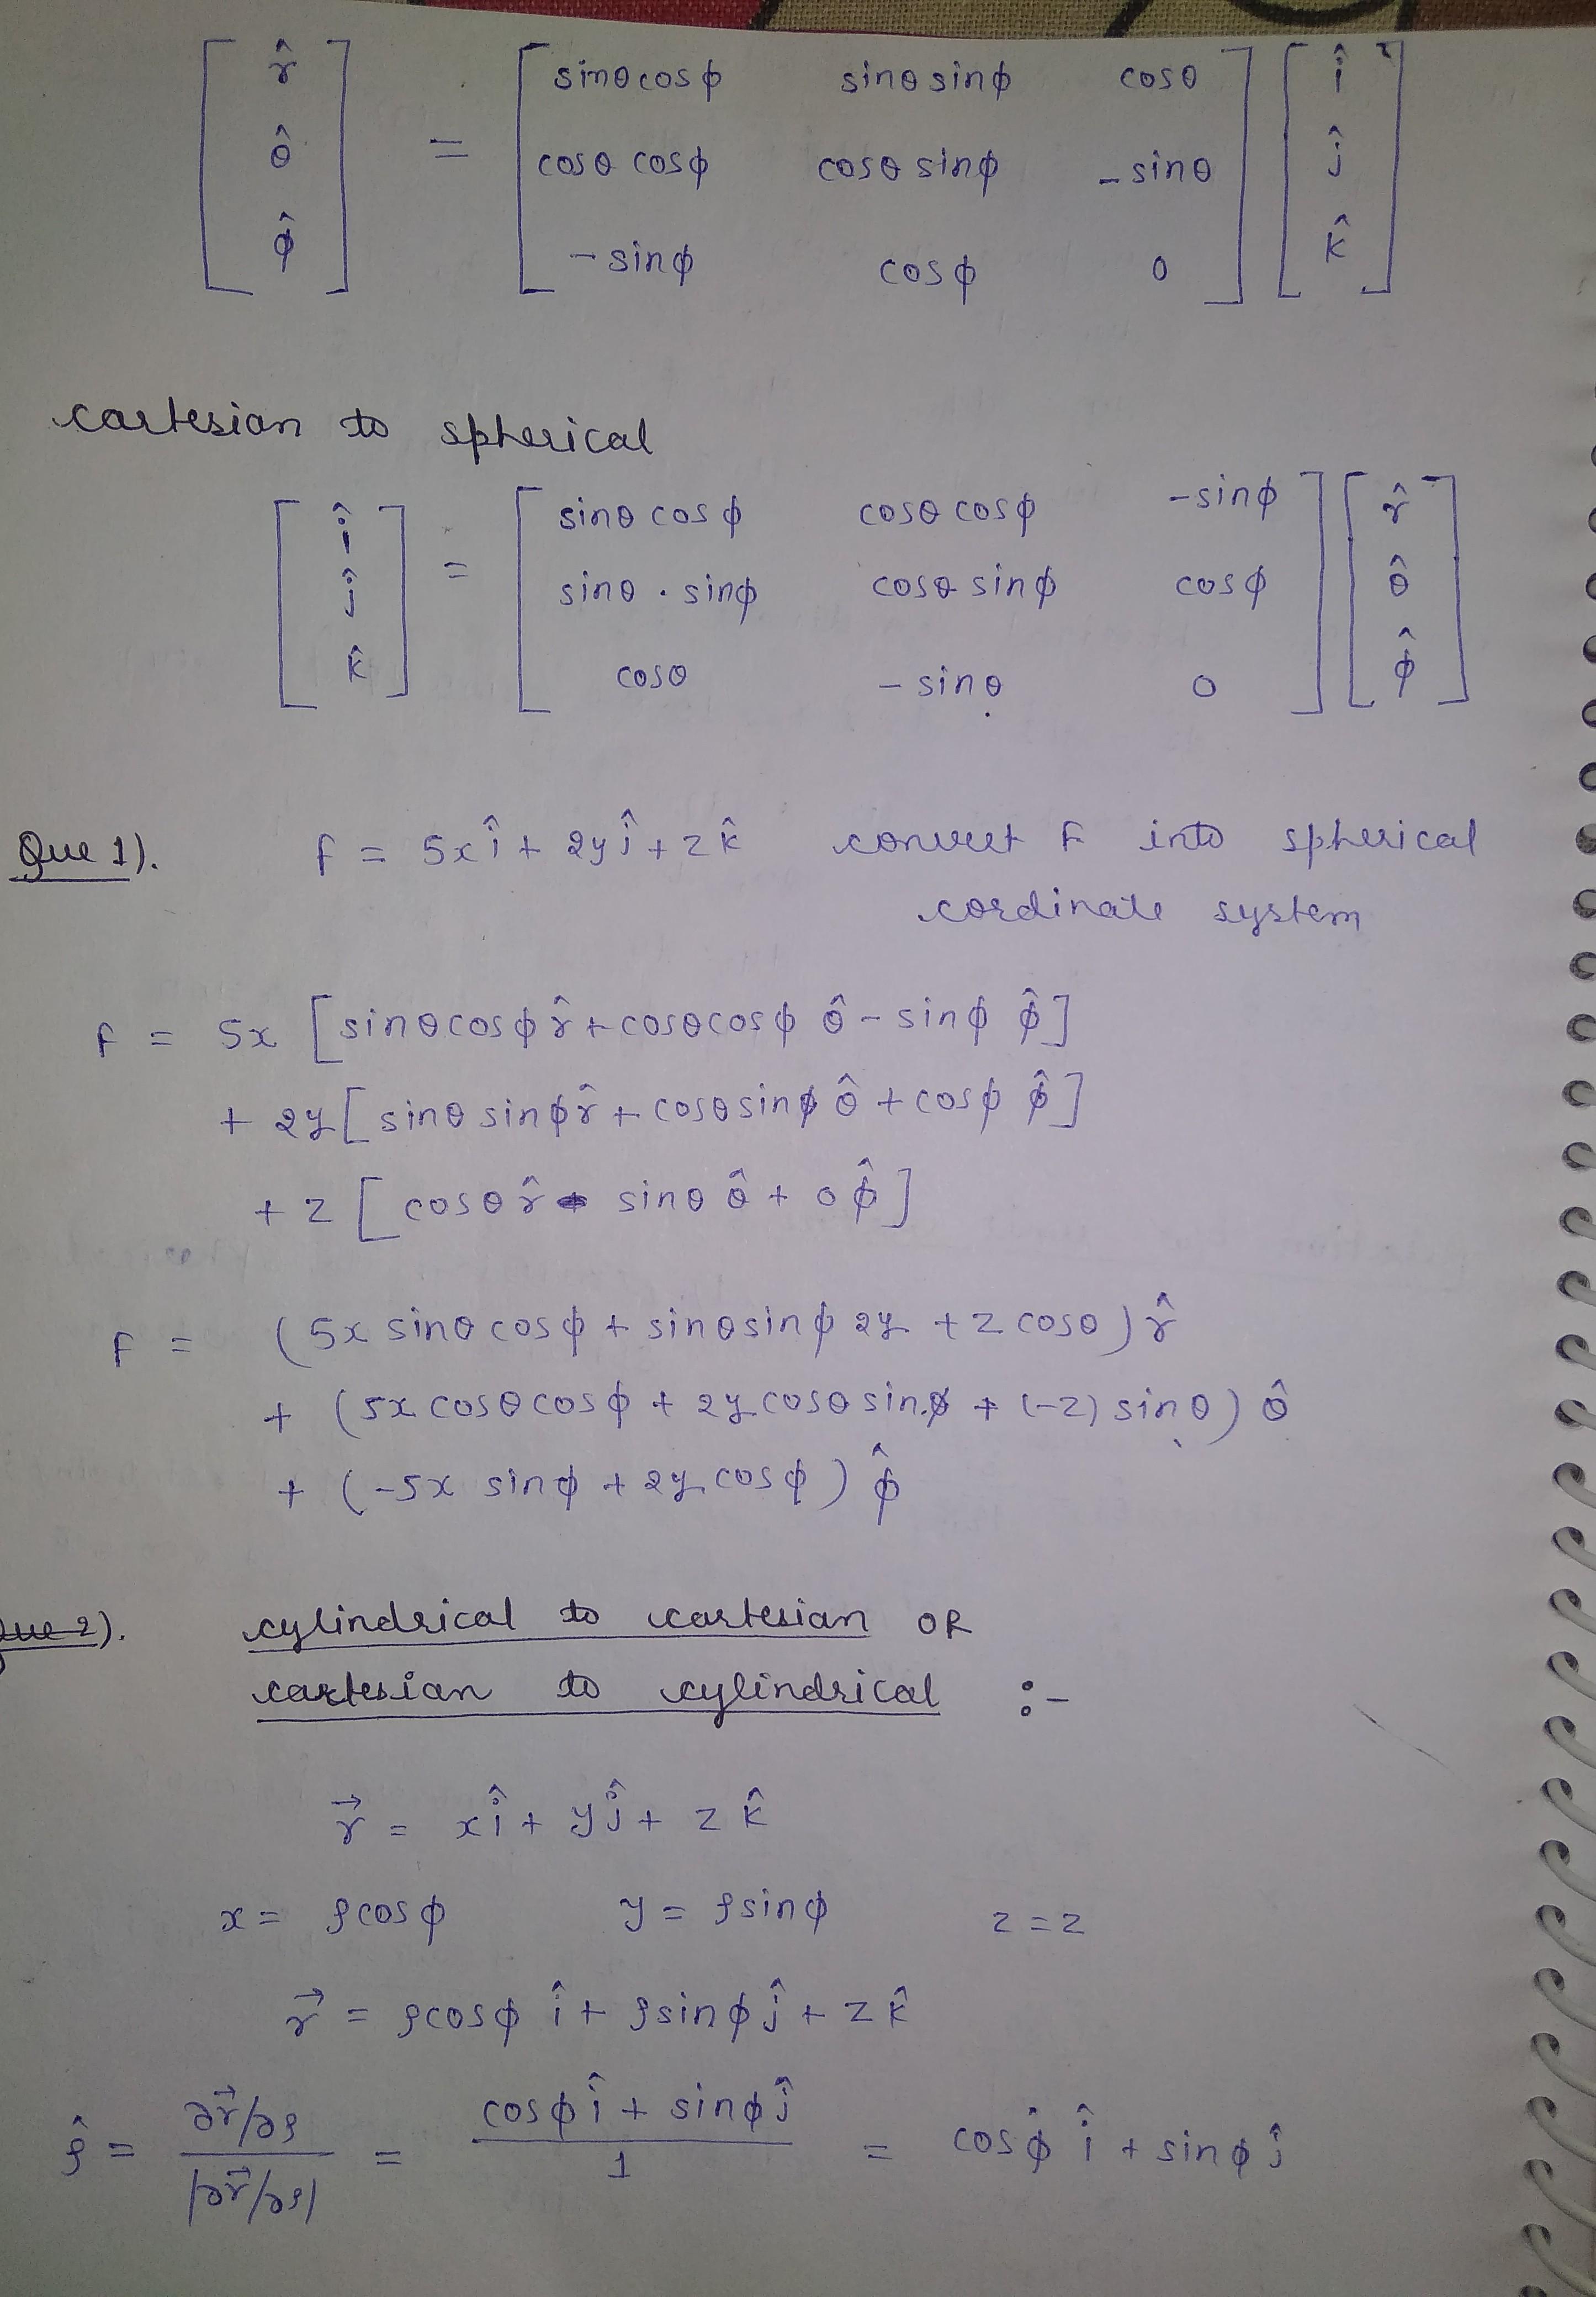 [ r̂ θ̂ φ̂ ] = [ sinθcosφ sinθsinφ cosθ
cosθ cosφ cosθ sinφ -sinθ
-sinφ cosφ 0 ] [ î ĵ k̂ ]
cartesian to spherical
[ î ĵ k̂ ] = [ sinθ cosφ cosθ cosφ -sinφ
sinθ · sinφ cosθ sinφ cosφ
cosθ - sinθ 0 ] [ r̂ θ̂ φ̂ ]
Que 1). F = 5xî + 2yĵ + zk̂ convert F into spherical
cordinate system
F = 5x [sinθcosφ r̂ + cosθcosφ θ̂ - sinφ φ̂]
+ 2y [sinθ sinφ r̂ + cosθsinφ θ̂ + cosφ φ̂]
+ z [cosθ r̂ - sinθ θ̂ + 0 φ̂]
F = (5x sinθ cosφ + sinθsinφ 2y + z cosθ) r̂
+ (5x cosθcosφ + 2y cosθ sinφ + (-z) sinθ) θ̂
+ (-5x sinφ + 2y cosφ) φ̂
Que 2). cylindrical to cartesian OR
cartesian to cylindrical :-
r⃗ = xî + yĵ + zk̂
x = ρcosφ y = ρsinφ z = z
r⃗ = ρcosφ î + ρsinφ ĵ + zk̂
ρ̂ = ∂r⃗/∂ρ / |∂r⃗/∂ρ| = cosφ î + sinφ ĵ / 1 = cosφ î + sinφ ĵ